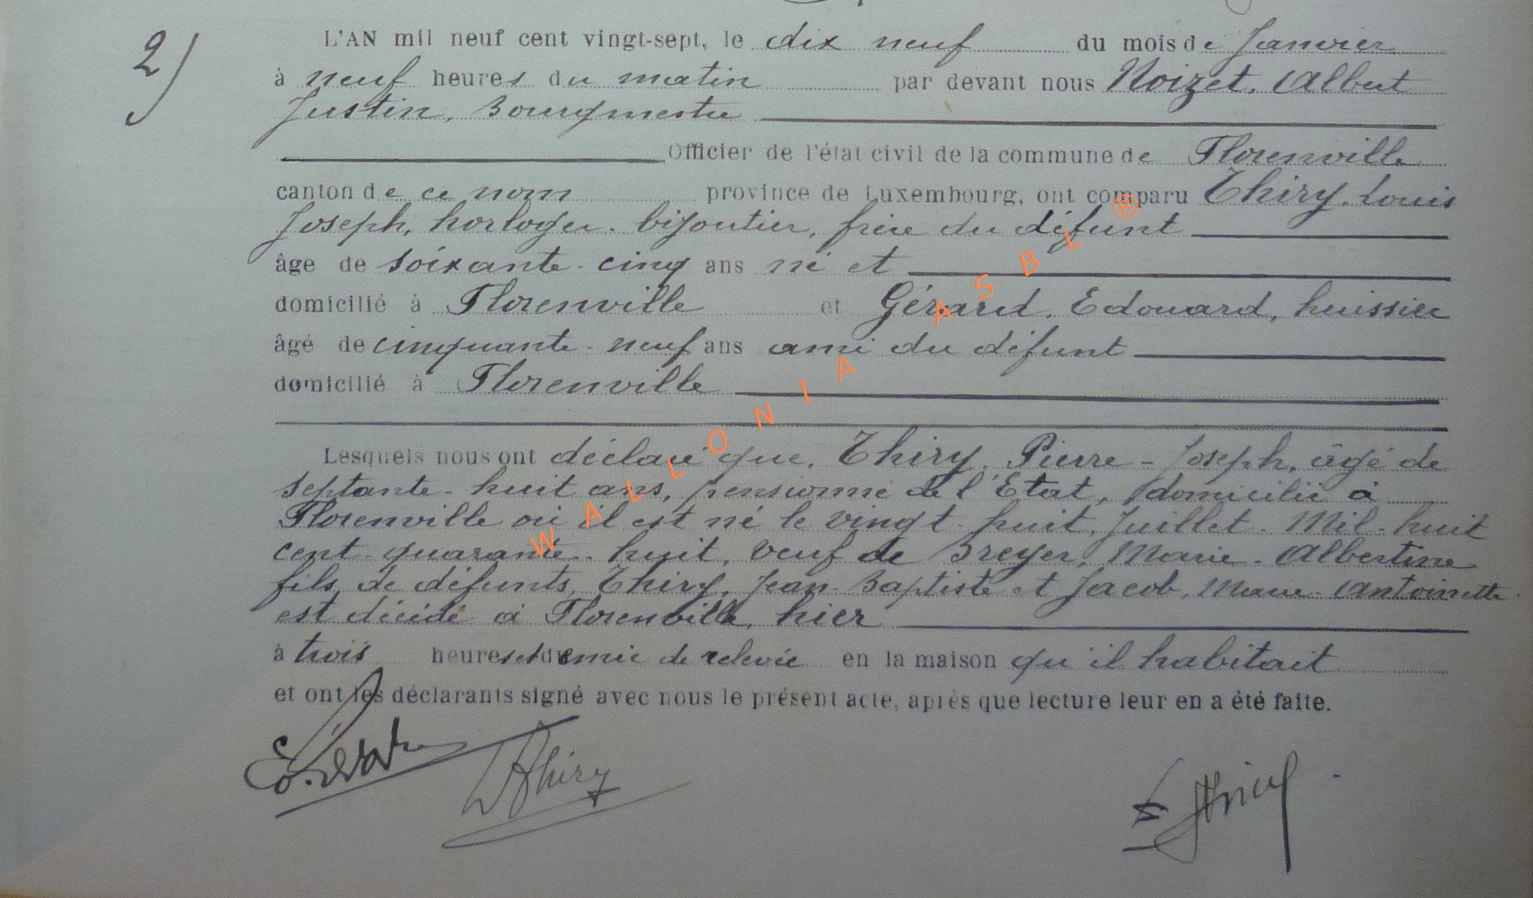 2)
L'AN mil neuf cent vingt-sept, le dix neuf du mois de Janvier
à neuf heures du matin par devant nous Noizet, Albert
Justin, Bourgmestre
Officier de l'état civil de la commune de Florenville
canton de ce nom province de Luxembourg, ont comparu Thiry, Louis
Joseph, horloger-bijoutier, frère du défunt
âge de soixante-cinq ans né et
domicilié à Florenville et Gérard, Edouard, huissier
âgé de cinquante-neuf ans ami du défunt
domicilié à Florenville
Lesquels nous ont déclaré que, Thiry, Pierre-Joseph, âgé de
septante-huit ans, pensionné de l'Etat, domicilié à
Florenville où il est né le vingt-huit Juillet Mil-huit
cent-quarante-huit, veuf de Breyer, Marie-Albertine
fils de défunts, Thiry, Jean-Baptiste et Jacob, Marie-Antoinette
est décédé à Florenville, hier
à trois heures et demie de relevée en la maison qu'il habitait
et ont les déclarants signé avec nous le présent acte, après que lecture leur en a été faite.
LThiry
WALLONIA ASBL ®